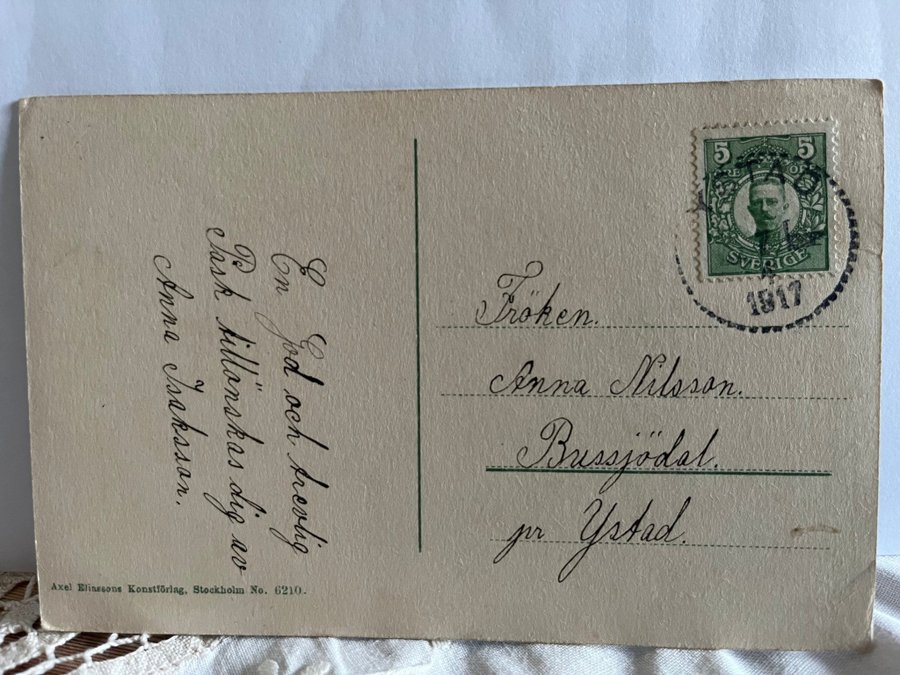 En God och trevlig
Påsk tillönskas dig av
Anna Isaksson.
5 5
ÖRE
SVERIGE
YSTAD
1917
Fröken.
Anna Nilsson.
Bussjödal.
pr Ystad.
Axel Eliassons Konstförlag, Stockholm No. 6210.